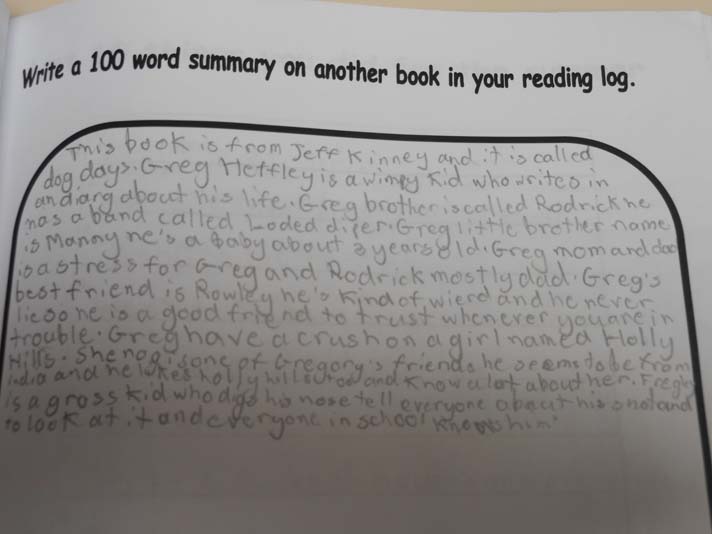 Write a 100 word summary on another book in your reading log.
This book is from Jeff Kinney and it is called
dog days. Greg Heffley is a wimpy kid who writes in
an diarg about his life. Greg brother is called Rodrick he
has a band called Loded diper. Greg little brother name
is Manny he's a Baby about 3 years old. Greg mom and dad
is a stress for Greg and Rodrick mostly dad. Greg's
best friend is Rowley he's kind of wierd and he never
lie so he is a good friend to trust whenever you are in
trouble. Greg have a crush on a girl named Holly
Hills. is one of Gregory's friends he seems to be from
india and he likes holly hills too and know a lot about her. Fregly
is a gross kid who digs his nose tell everyone about his snot and
to look at it and everyone in school knows him.